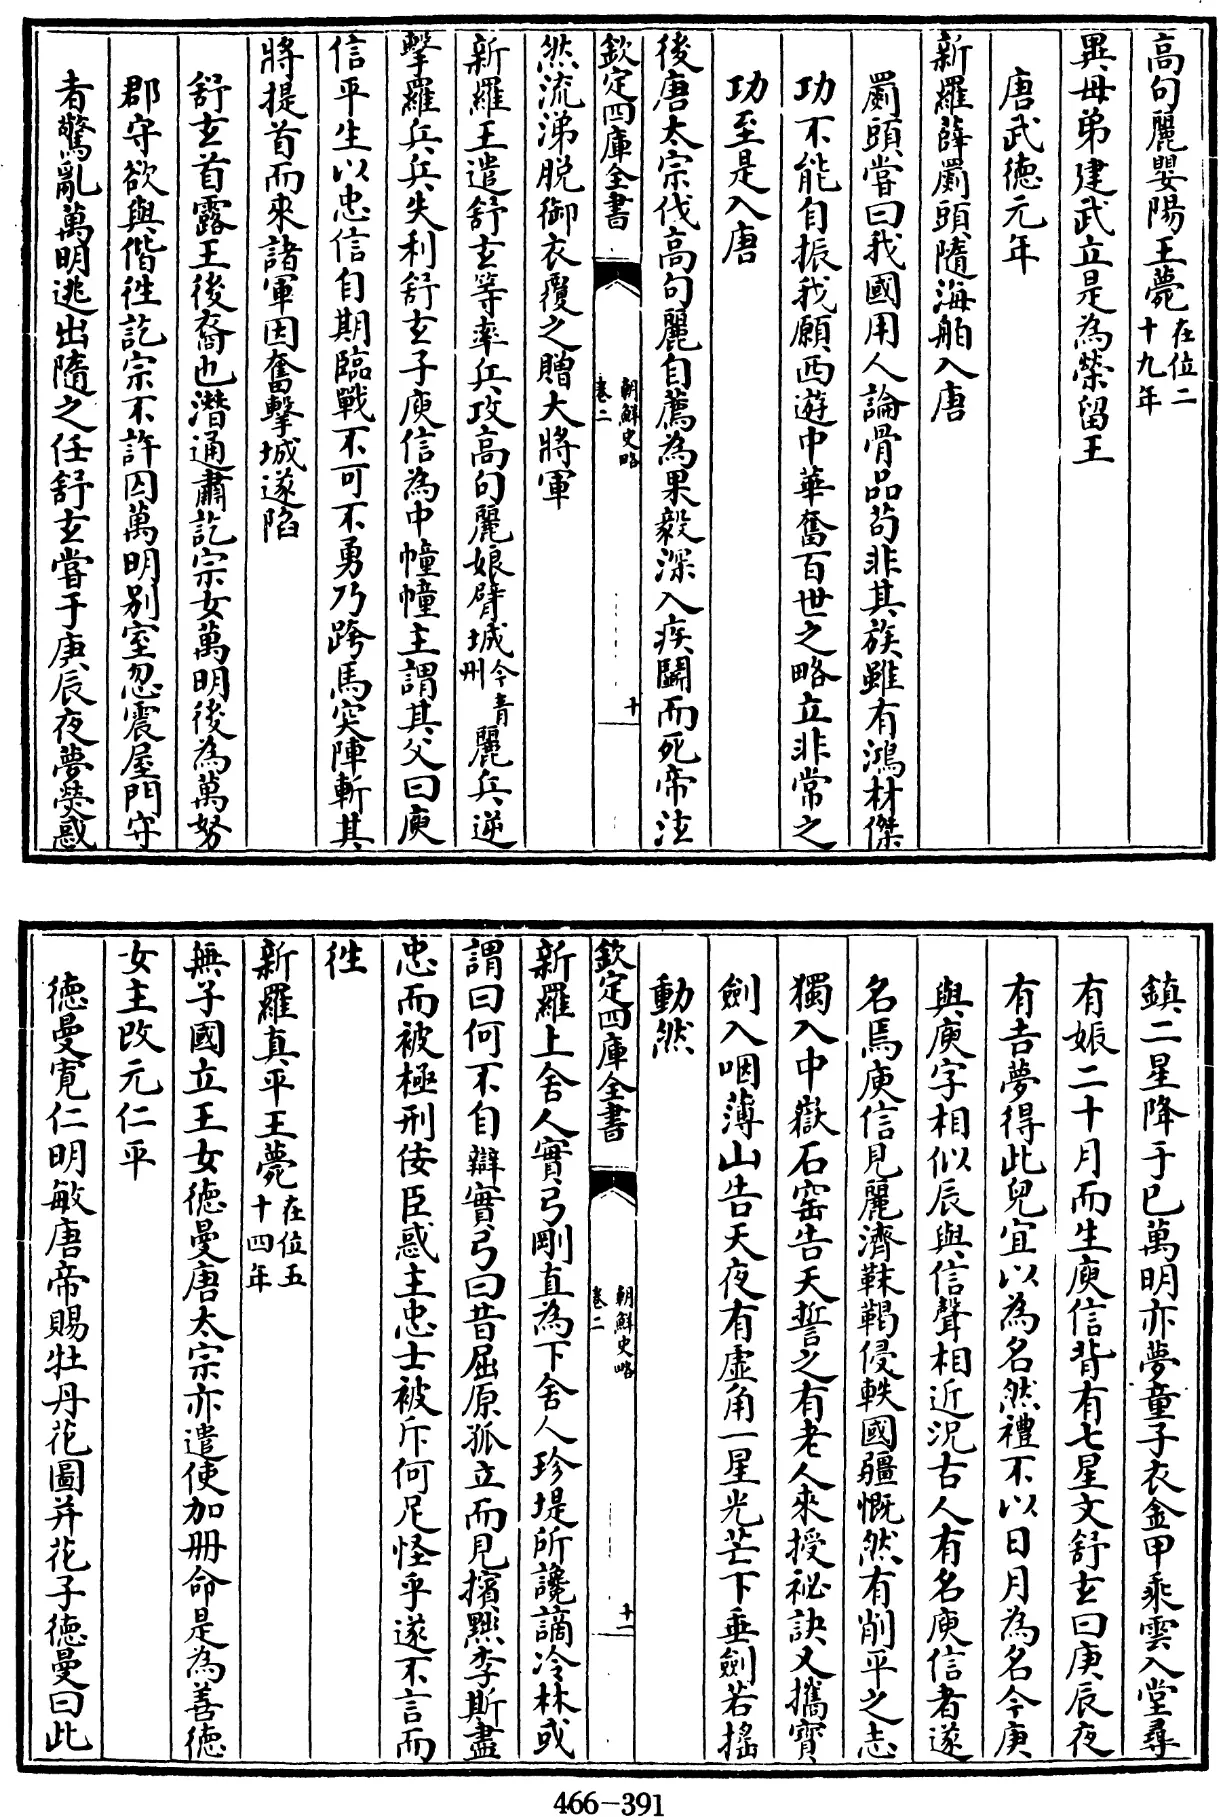 高句麗嬰陽王薨在位二十九年
異母弟建武立是為榮留王
唐武德元年
新羅薛罽頭隨海舶入唐
罽頭嘗曰我國用人論骨品茍非其族雖有鴻材傑
功不能自振我願西遊中華奮百世之略立非常之
功至是入唐
後唐太宗伐高句麗自薦為果毅深入疾鬭而死帝泣
欽定四庫全書
朝鮮史略
卷二
十
然流涕脫御衣覆之贈大將軍
新羅王遣舒玄等率兵攻高句麗娘臂城今青州麗兵逆
擊羅兵兵失利舒玄子庾信為中幢幢主謂其父曰庾
信平生以忠信自期臨戰不可不勇乃跨馬突陣斬其
將提首而來諸軍因奮擊城遂陷
舒玄首露王後裔也潛通肅訖宗女萬明後為萬弩
郡守欲與偕往訖宗不許囚萬明別室忽震屋門守
者驚亂萬明逃出隨之任舒玄嘗于庚辰夜夢熒惑
鎮二星降于已萬明亦夢童子衣金甲乘雲入堂尋
有娠二十月而生庾信背有七星文舒玄曰庚辰夜
有吉夢得此兒宜以為名然禮不以日月為名今庚
與庾字相似辰與信聲相近況古人有名庾信者遂
名焉庾信見麗濟靺鞨侵軼國疆慨然有削平之志
獨入中嶽石窑告天誓之有老人來授祕訣又攜寶
劍入咽薄山告天夜有虛角一星光芒下垂劍若搖
動然
欽定四庫全書
朝鮮史略
卷二
十一
新羅上舍人實弓剛直為下舍人珍堤所讒謫冷林或
謂曰何不自辯實弓曰昔屈原孤立而見擯黜李斯盡
忠而被極刑佞臣惑主忠士被斥何足怪乎遂不言而
徃
新羅真平王薨在位五十四年
無子國立王女德曼唐太宗亦遣使加冊命是為善德
女主改元仁平
德曼寬仁明敏唐帝賜牡丹花圖并花子德曼曰此
466-391